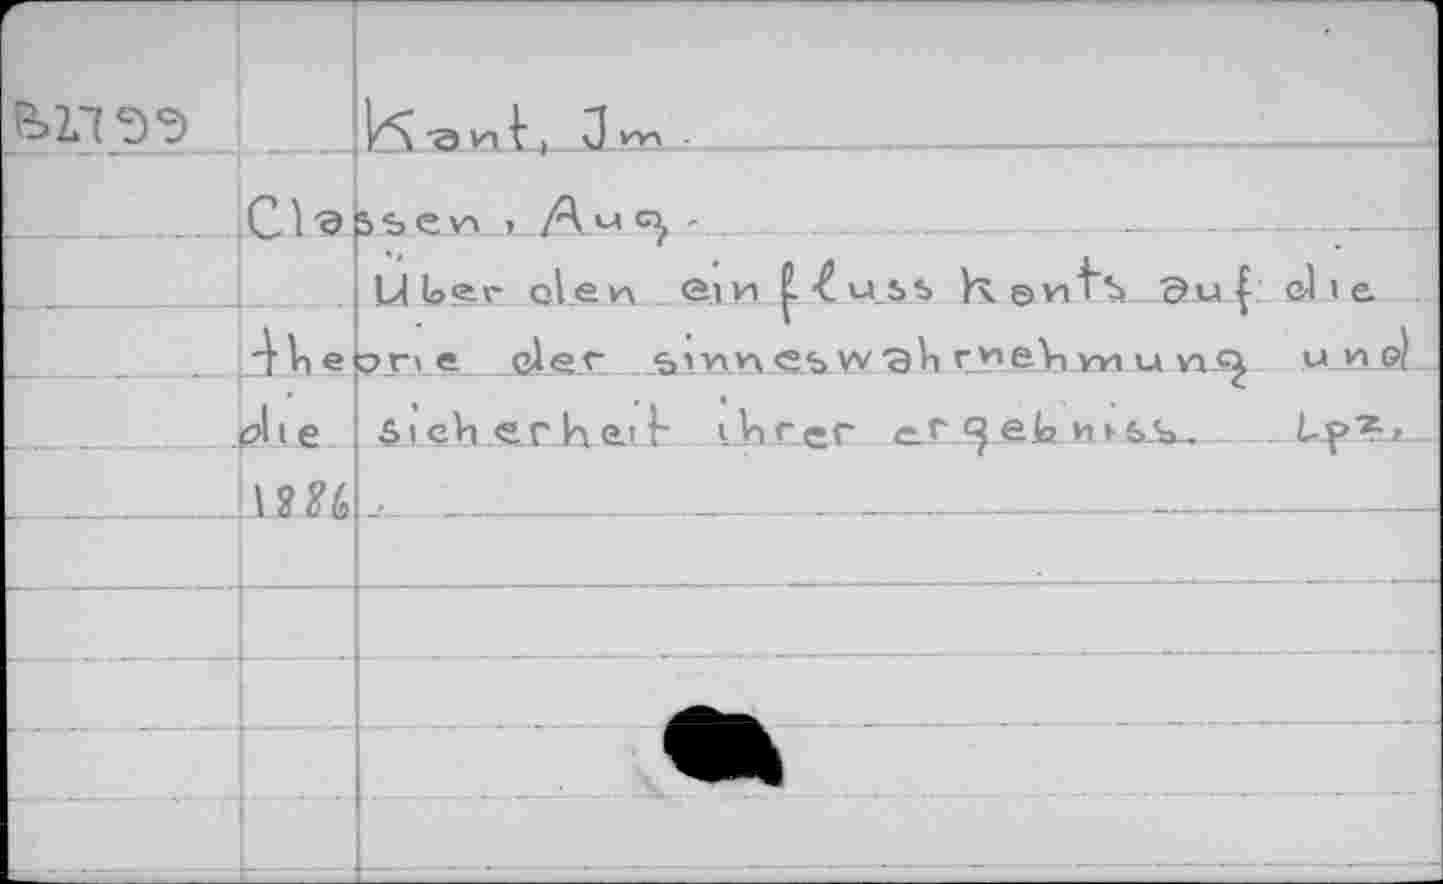 B2799 Kant, Im.
Classen, Aug.
Über den einfluss Kants auf die
theorie der sinneswahrnehmung und
die sicherheit ihrer ergebniss. Lpz,
1886.